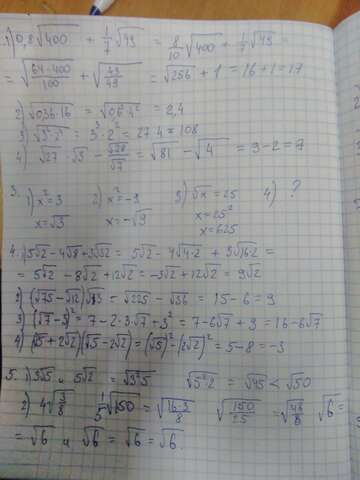 1) 0,8√400 + 1/7 √49 = 8/10 √400 + 1/7 √49 =
= √(64·400/100) + √(49/49) = √256 + 1 = 16+1 = 17
2) √0,36·16 = √0,6²·4² = 2,4
3) √3⁶·2⁴ = 3³·2² = 27·4 = 108
4) √27 · √3 − √28/√7 = √81 − √4 = 9−2 = 7
3. 1) x² = 3 2) x² = −9 3) √x = 25 4) ?
x = √3 x = −√9 x = 25²
x = 625
4. 1) 5√2 − 4√8 + 3√32 = 5√2 − 4√4·2 + 3√16·2 =
= 5√2 − 8√2 + 12√2 = −3√2 + 12√2 = 9√2
2) (√75 − √12)√3 = √225 − √36 = 15 − 6 = 9
3) (√7−3)² = 7 − 2·3·√7 + 3² = 7−6√7 + 9 = 16−6√7
4) (√5 + 2√2)(√5 − 2√2) = (√5)² − (2√2)² = 5−8 = −3
5. 1) 3√5 и 5√2 = √3²·5 √5²·2 = √45 < √50
2) 4√(3/8) 1/5 √150 = √(16·3/8) √(150/25) = √(48/8) √6 =
= √6 и √6 = √6 = √6.